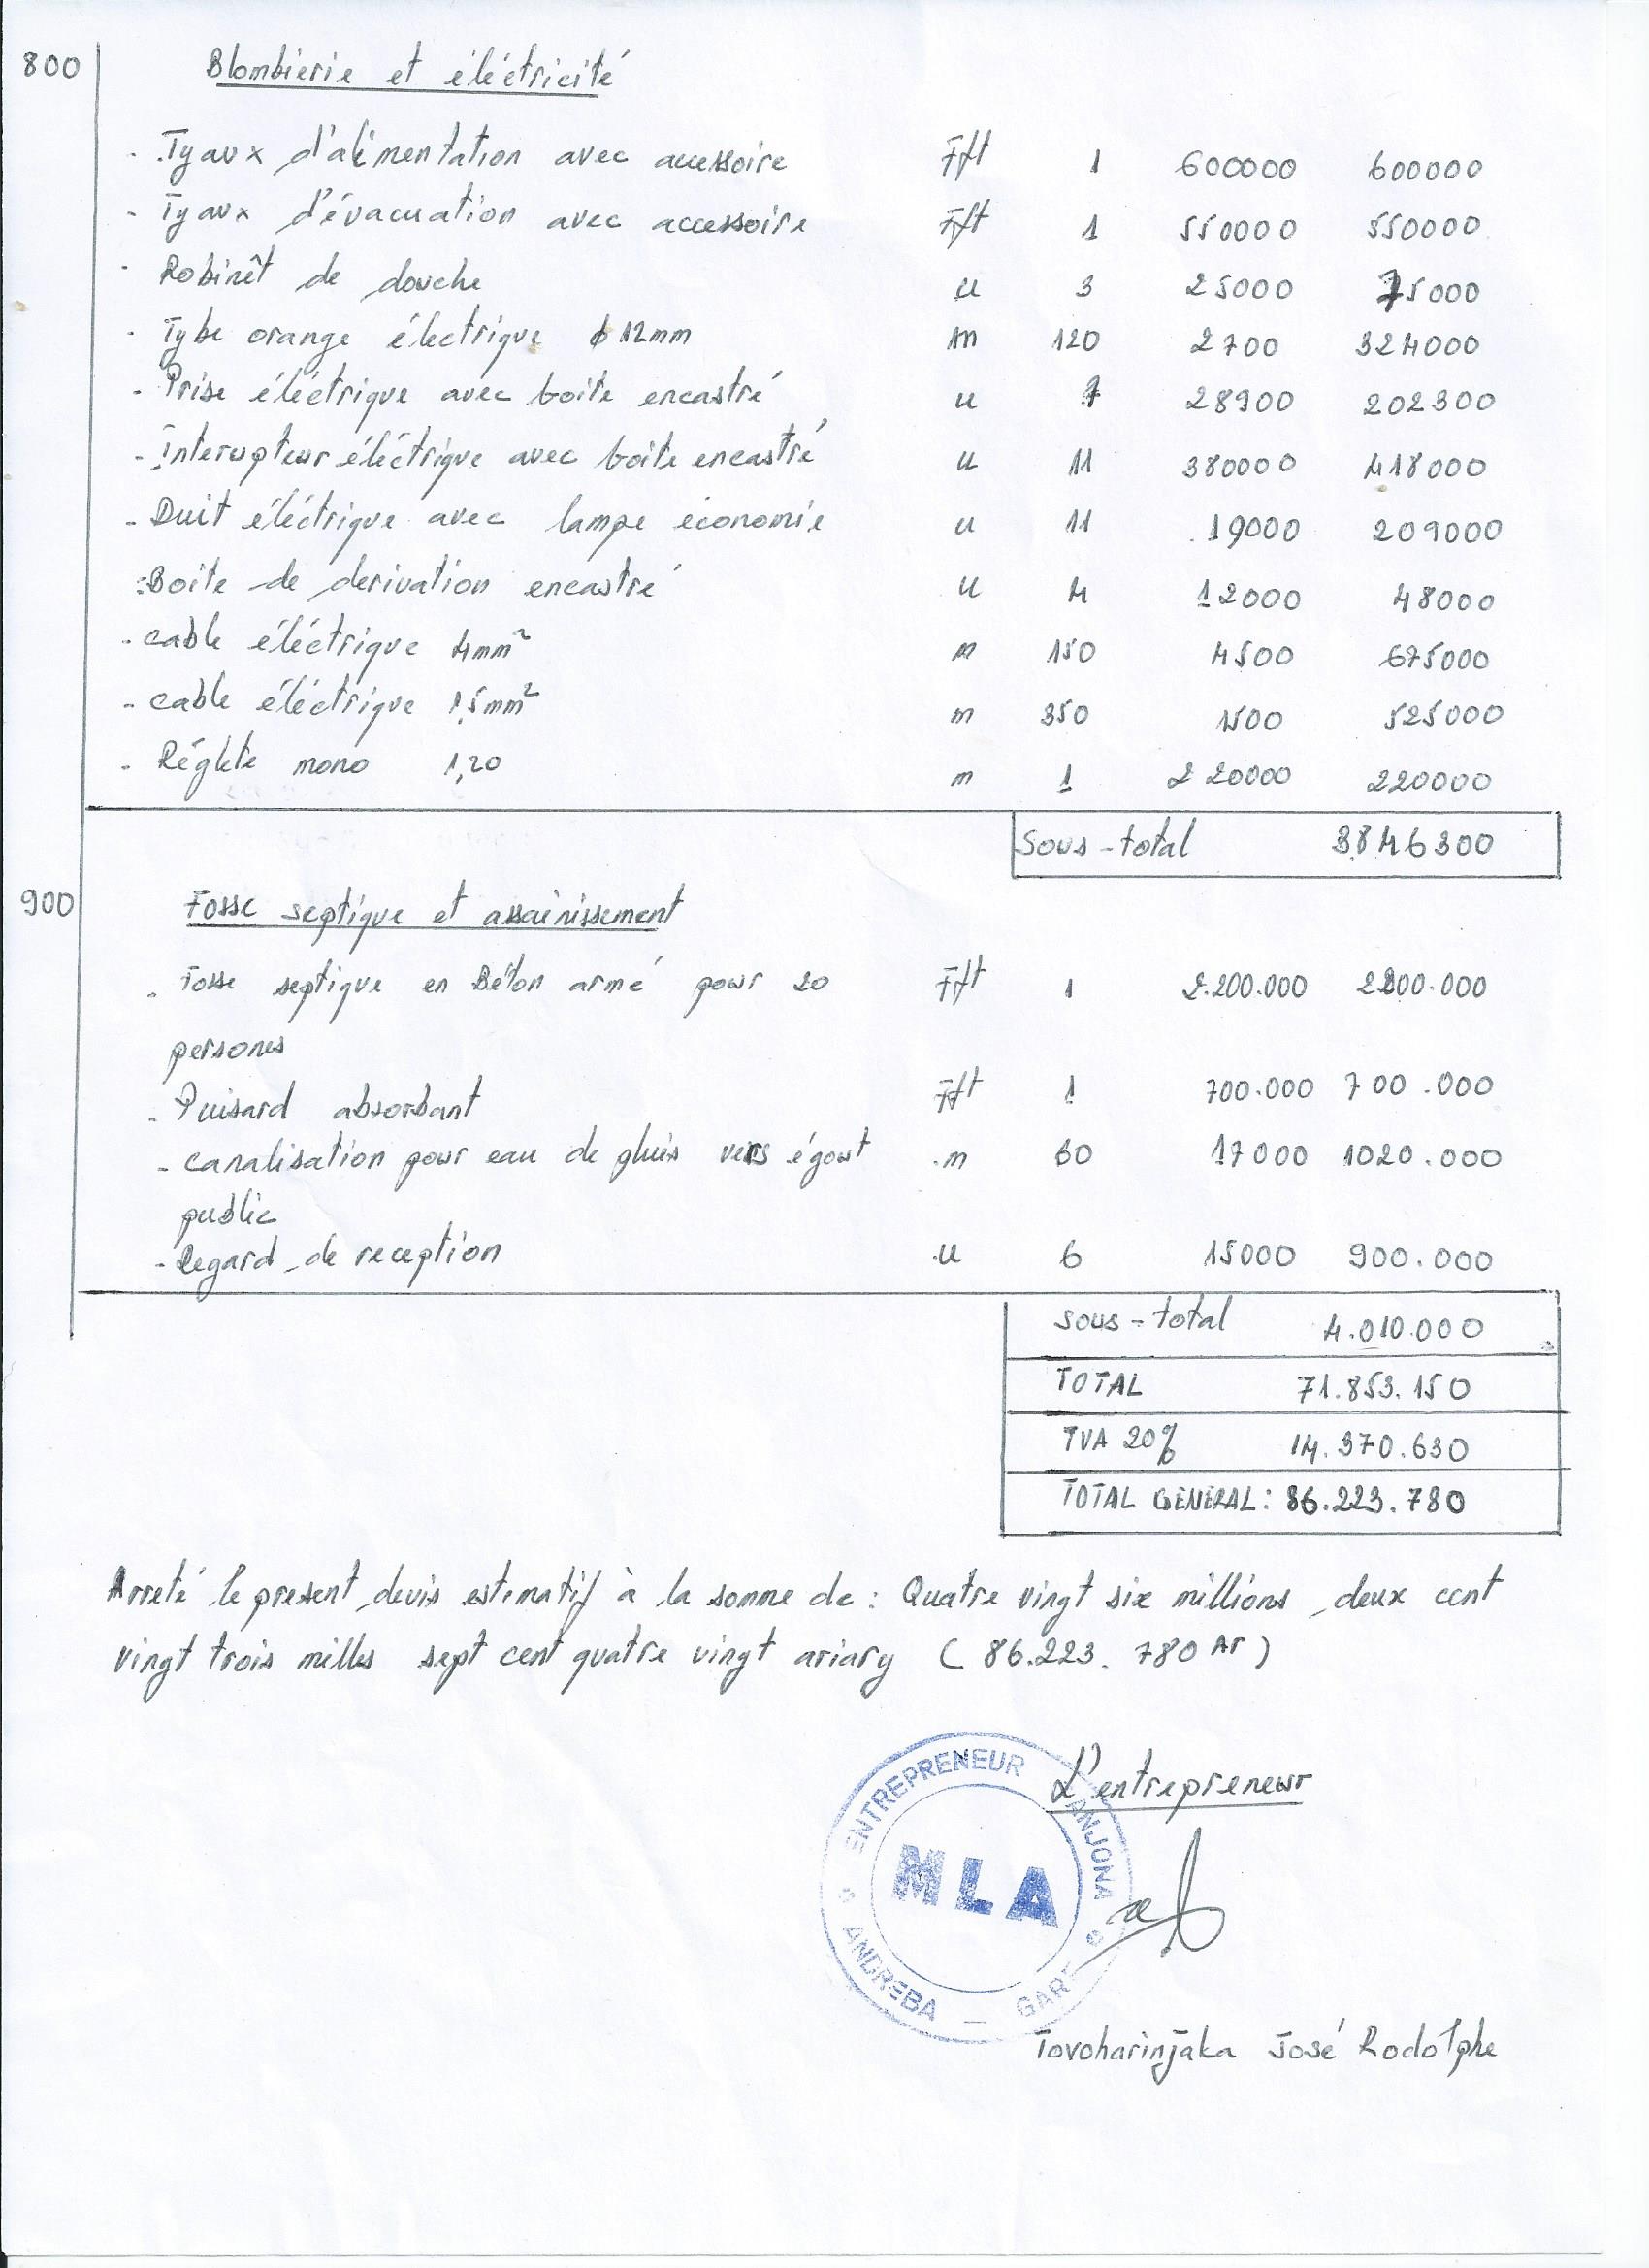 800 Blombierie et éléctricité
- Tyaux d'alimentation avec accessoire Fft 1 600000 600000
- Tyaux d'évacuation avec accessoire Fft 1 550000 550000
- Robinêt de douche u 3 25000 75000
- Tybe orange électrique ϕ 12mm m 120 2700 324000
- Prise éléctrique avec boite encastré u 7 28900 202300
- Interupteur éléctrique avec boite encastré u 11 380000 418000
- Duit éléctrique avec lampe économie u 11 19000 209000
- Boite de derivation encastré u 4 12000 48000
- cable éléctrique 4mm² m 150 4500 675000
- cable éléctrique 1,5mm² m 350 1500 525000
- Réglete mono 1,20 m 1 220000 220000
Sous-total 3846300
900 Fosse septique et assainissement
- Fosse septique en Béton armé pour 20 Fft 1 2.200.000 2200.000
persones
- Puisard absorbant Fft 1 700.000 700.000
- canalisation pour eau de pluis vers égout m 60 17000 1020.000
public
- Regard de reception u 6 15000 900.000
sous-total 4.010.000
TOTAL 71.853.150
TVA 20% 14.370.630
TOTAL GENERAL: 86.223.780
Arreté le present devis estimatif à la somme de : Quatre vingt six millions deux cent
vingt trois milles sept cent quatre vingt ariary ( 86.223.780 Ar )
L'entrepreneur
ENTREPRENEUR ANJONA
MLA
ANDREBA _ GARE
Tovoharinjaka José Rodolphe